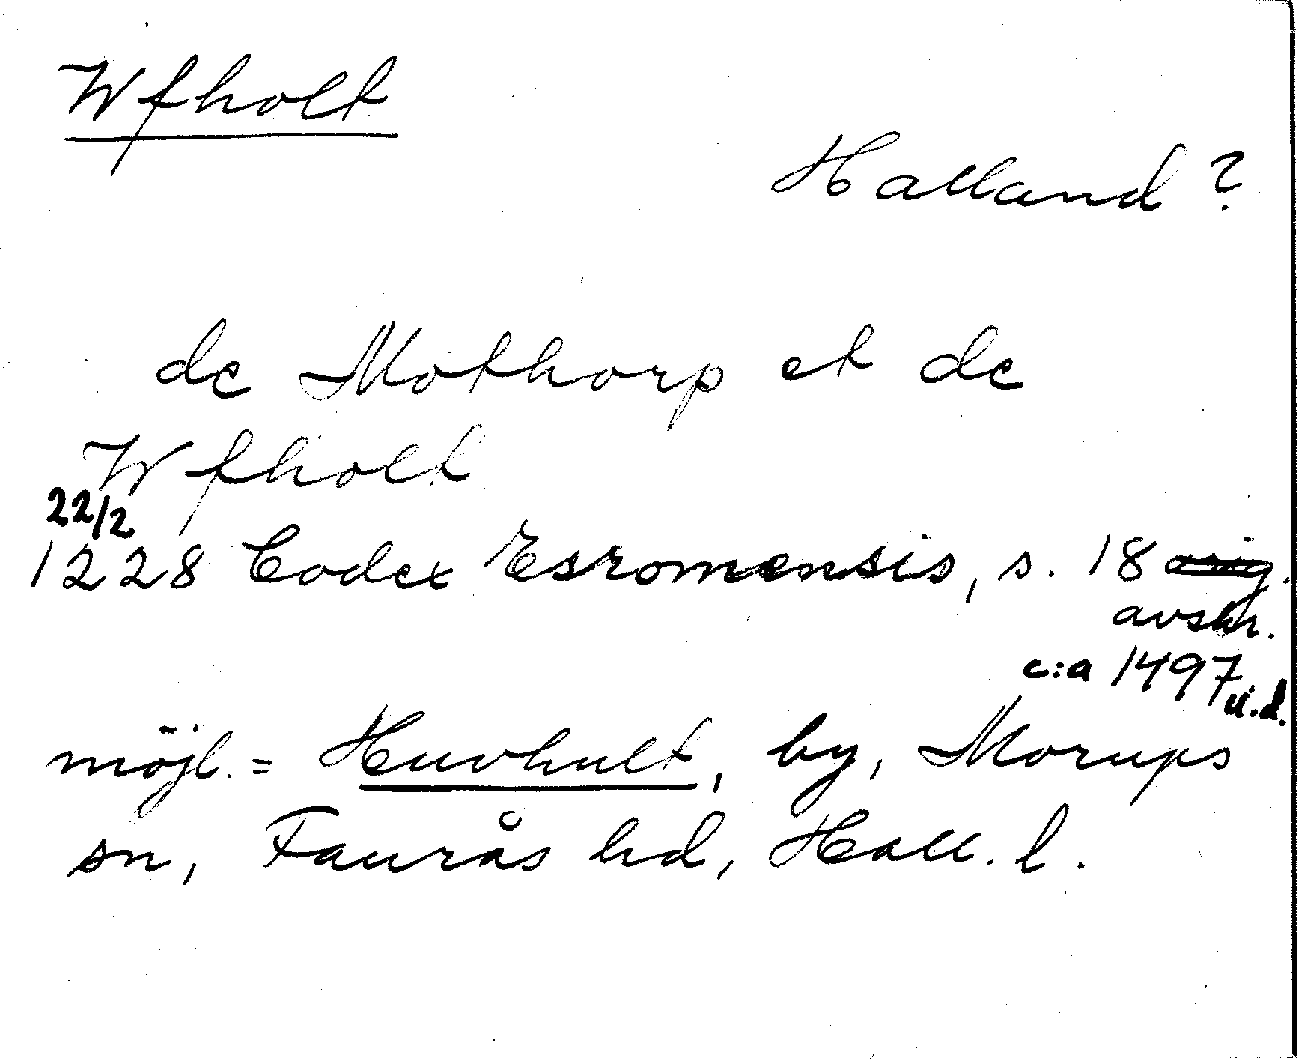 Wfholt
Halland?
de Mothorp et de
Wfholt
22/2
1228 Codex Esromensis, s. 18 orig.
avskr.
c:a 1497 u.d.
möjl. = Huvhult, by, Morups
sn, Faurås hd, Hall. l.